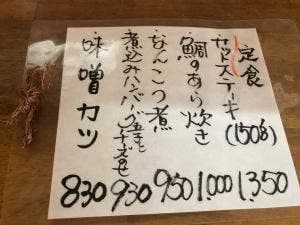 定食
カットステーキ(150g) 1.350
鯛のあら炊き 1.000
なんこつ煮 950
煮込みハンバーグ玉子とチーズのせ 930
味噌カツ 830